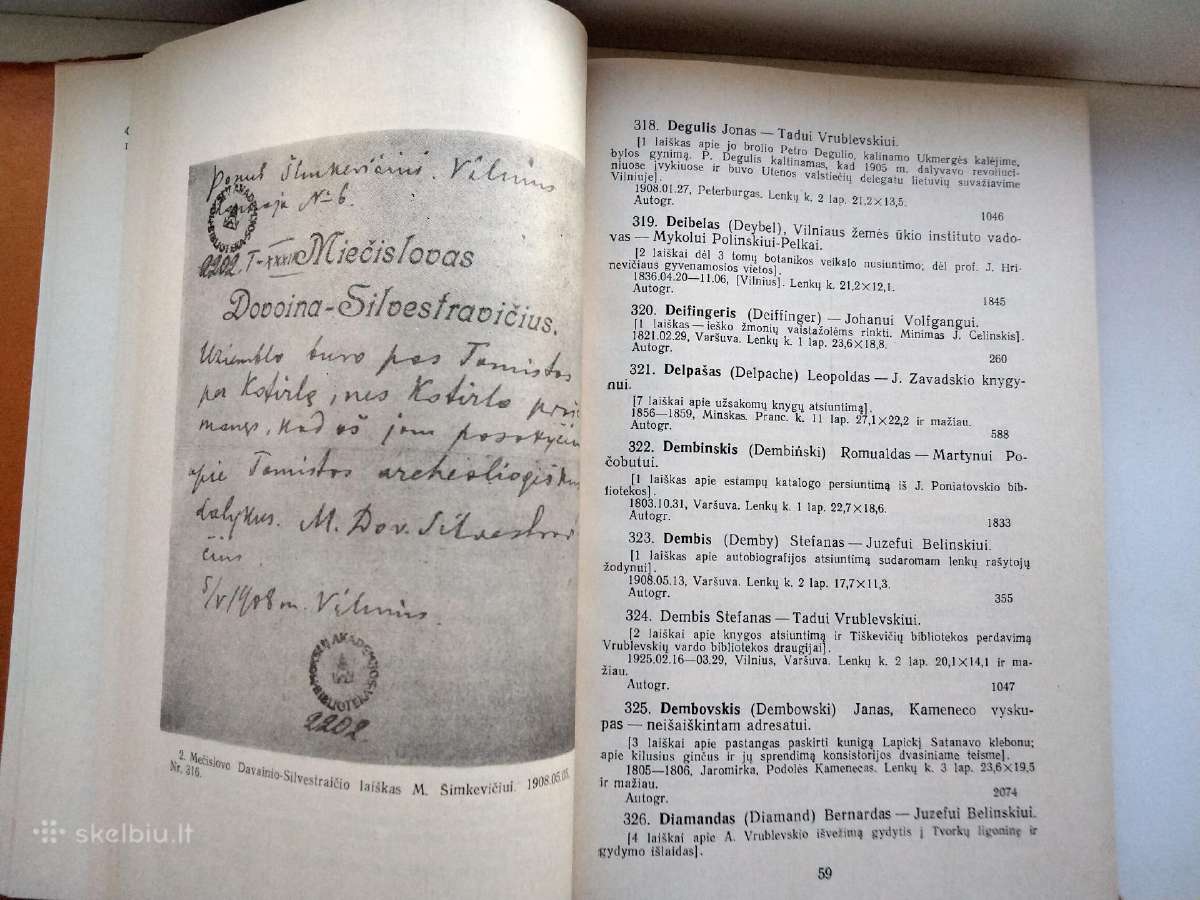 Ponui Šimkevičiui. Vilnius
No 6.
2202. T-XXXI
Miečislovas
Dovoina-Silvestravičius.
buvo pas Tamistos
per Kotirlą, nes Kotirlo
kad aš jam
apie Tamistos
dalykus. M. Dov. Silvestrav
čius
5/V 1908 m. Vilnius.
MOKSLŲ AKADEMIJOS
BIBLIOTEKA
2202
2. Mečislovo Davainio-Silvestraičio laiškas M. Šimkevičiui. 1908.05.05.
Nr. 316.
skelbiu.lt
318. Degulis Jonas — Tadui Vrublevskiui.
[1 laiškas apie jo brolio Petro Degulio, kalinamo Ukmergės kalėjime,
bylos gynimą. P. Degulis kaltinamas, kad 1905 m. dalyvavo revoliuci-
niuose įvykiuose ir buvo Utenos valstiečių delegatu lietuvių suvažiavime
Vilniuje].
1908.01.27, Peterburgas. Lenkų k. 2 lap. 21,2×13,5.
Autogr.
1046
319. Deibelas (Deybel), Vilniaus žemės ūkio instituto vado-
vas — Mykolui Polinskiui-Pelkai.
[2 laiškai dėl 3 tomų botanikos veikalo nusiuntimo; dėl prof. J. Hri-
nevičiaus gyvenamosios vietos].
1836.04.20—11.06, [Vilnius]. Lenkų k. 21,2×12,1.
Autogr.
1845
320. Deifingeris (Deiffinger) — Johanui Volfgangui.
[1 laiškas — ieško žmonių vaistažolėms rinkti. Minimas J. Celinskis].
1821.02.29, Varšuva. Lenkų k. 1 lap. 23,6×18,8.
Autogr.
260
321. Delpašas (Delpache) Leopoldas — J. Zavadskio knygy-
nui.
[7 laiškai apie užsakomų knygų atsiuntimą].
1856—1859, Minskas. Pranc. k. 11 lap. 27,1×22,2 ir mažiau.
Autogr.
588
322. Dembinskis (Dembiński) Romualdas — Martynui Po-
čobutui.
[1 laiškas apie estampų katalogo persiuntimą iš J. Poniatovskio bib-
liotekos].
1803.10.31, Varšuva. Lenkų k. 1 lap. 22,7×18,6.
Autogr.
1833
323. Dembis (Demby) Stefanas — Juzefui Belinskiui.
[1 laiškas apie autobiografijos atsiuntimą sudaromam lenkų rašytojų
žodynui].
1908.05.13, Varšuva. Lenkų k. 2 lap. 17,7×11,3.
Autogr.
355
324. Dembis Stefanas — Tadui Vrublevskiui.
[2 laiškai apie knygos atsiuntimą ir Tiškevičių bibliotekos perdavimą
Vrublevskių vardo bibliotekos draugijai].
1925.02.16—03.29, Vilnius, Varšuva. Lenkų k. 2 lap. 20,1×14,1 ir ma-
žiau.
Autogr.
1047
325. Dembovskis (Dembowski) Janas, Kameneco vysku-
pas — neišaiškintam adresatui.
[3 laiškai apie pastangas paskirti kunigą Lapickį Satanavo klebonu;
apie kilusius ginčus ir jų sprendimą konsistorijos dvasiniame teisme].
1805—1806, Jaromirka, Podolės Kamenecas. Lenkų k. 3 lap. 23,6×19,5
ir mažiau.
Autogr.
2074
326. Diamandas (Diamand) Bernardas — Juzefui Belinskiui.
[4 laiškai apie A. Vrublevskio išvežimą gydytis į Tvorkų ligoninę ir
gydymo išlaidas].
59